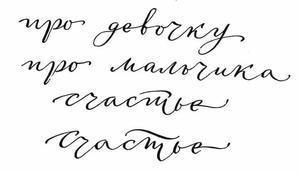 про девочку
про мальчика
счастье
счастье